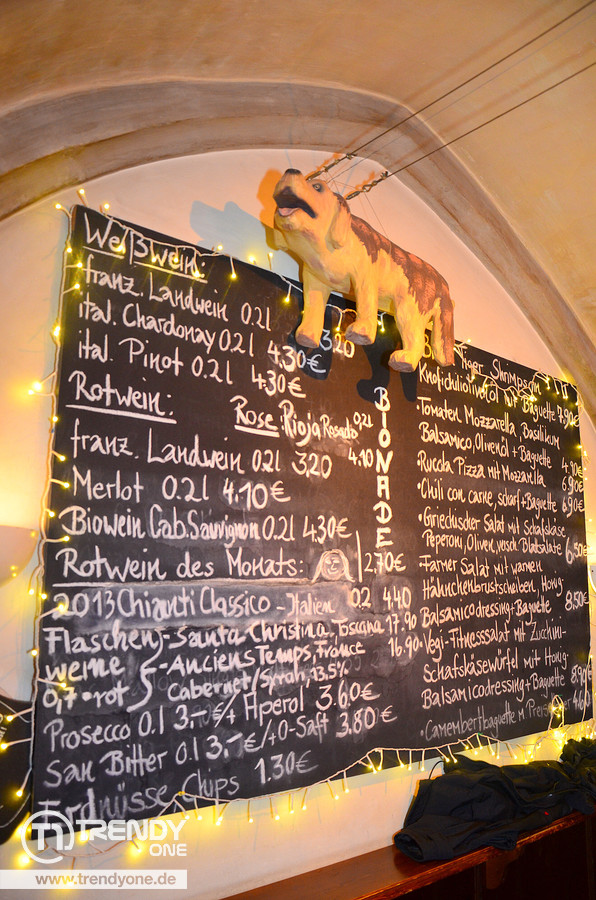 Weißwein:
franz. Landwein 0.2l 3,20
ital. Chardonay 0.2l 4.30€
ital. Pinot 0.2l 4.30€
Rotwein:
Rose: Rioja Rosado 0,2l 4.10
franz. Landwein 0.2l 3,20
Merlot 0.2l 4.10€
Biowein Cab. Sauvignon 0.2l 4,30€
Rotwein des Monats:
2013 Chianti Classico - Italien 0.2 4.40
Flaschen - Santa Christina, Toscana 17.90
weine - Anciens Temps, France 16.90
0,7 rot Cabernet/Syrah, 13.5%
Prosecco 0.1 3,-€/+ Aperol 3.60€
San Bitter 0.1 3,-€/+O-Saft 3.80€
Erdnüsse Chips 1.30€
BIONADE
2,70€
Tiger Shrimps in
Knofichiliolivenöl mit Baguette 7.90€
·Tomaten, Mozzarella, Basilikum
Balsamico, Olivenöl + Baguette 4.90€
·Rucola Pizza mit Mozzarella 6,90€
·Chili con carne, scharf + Baguette 6,90€
·Griechischer Salat mit Schafskäse
Peperoni, Oliven, versch. Blattsalate 6,50
·Farmer Salat mit warmen
Hähnchenbruststreifen, Honig-
Balsamicodressing + Baguette 8,50€
·Vegi-Fitnesssalat mit Zucchini-
Schafskäsewürfel mit Honig-
Balsamicodressing + Baguette
·Camembertbaguette m. 4.60
TRENDY
ONE
www.trendyone.de